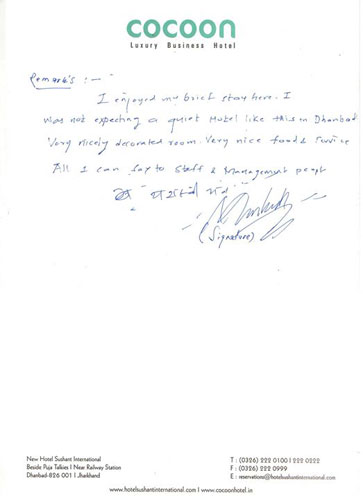 cocoon
Luxury Business Hotel
Remark's :-
I enjoyed my brief stay here. I
was not expecting a quiet Hotel like this in Dhanbad
Very nicely decorated room. Very nice food & service
All I can say to staff & Management people
(Signature)
New Hotel Sushant International
Beside Puja Talkies I Near Railway Station
Dhanbad-826 001 I Jharkhand
T : (0326) 222 0100 I 222 0222
F : (0326) 222 0999
E : reservations@hotelsushantinternational.com
www.hotelsushantinternational.com I www.cocoonhotel.in